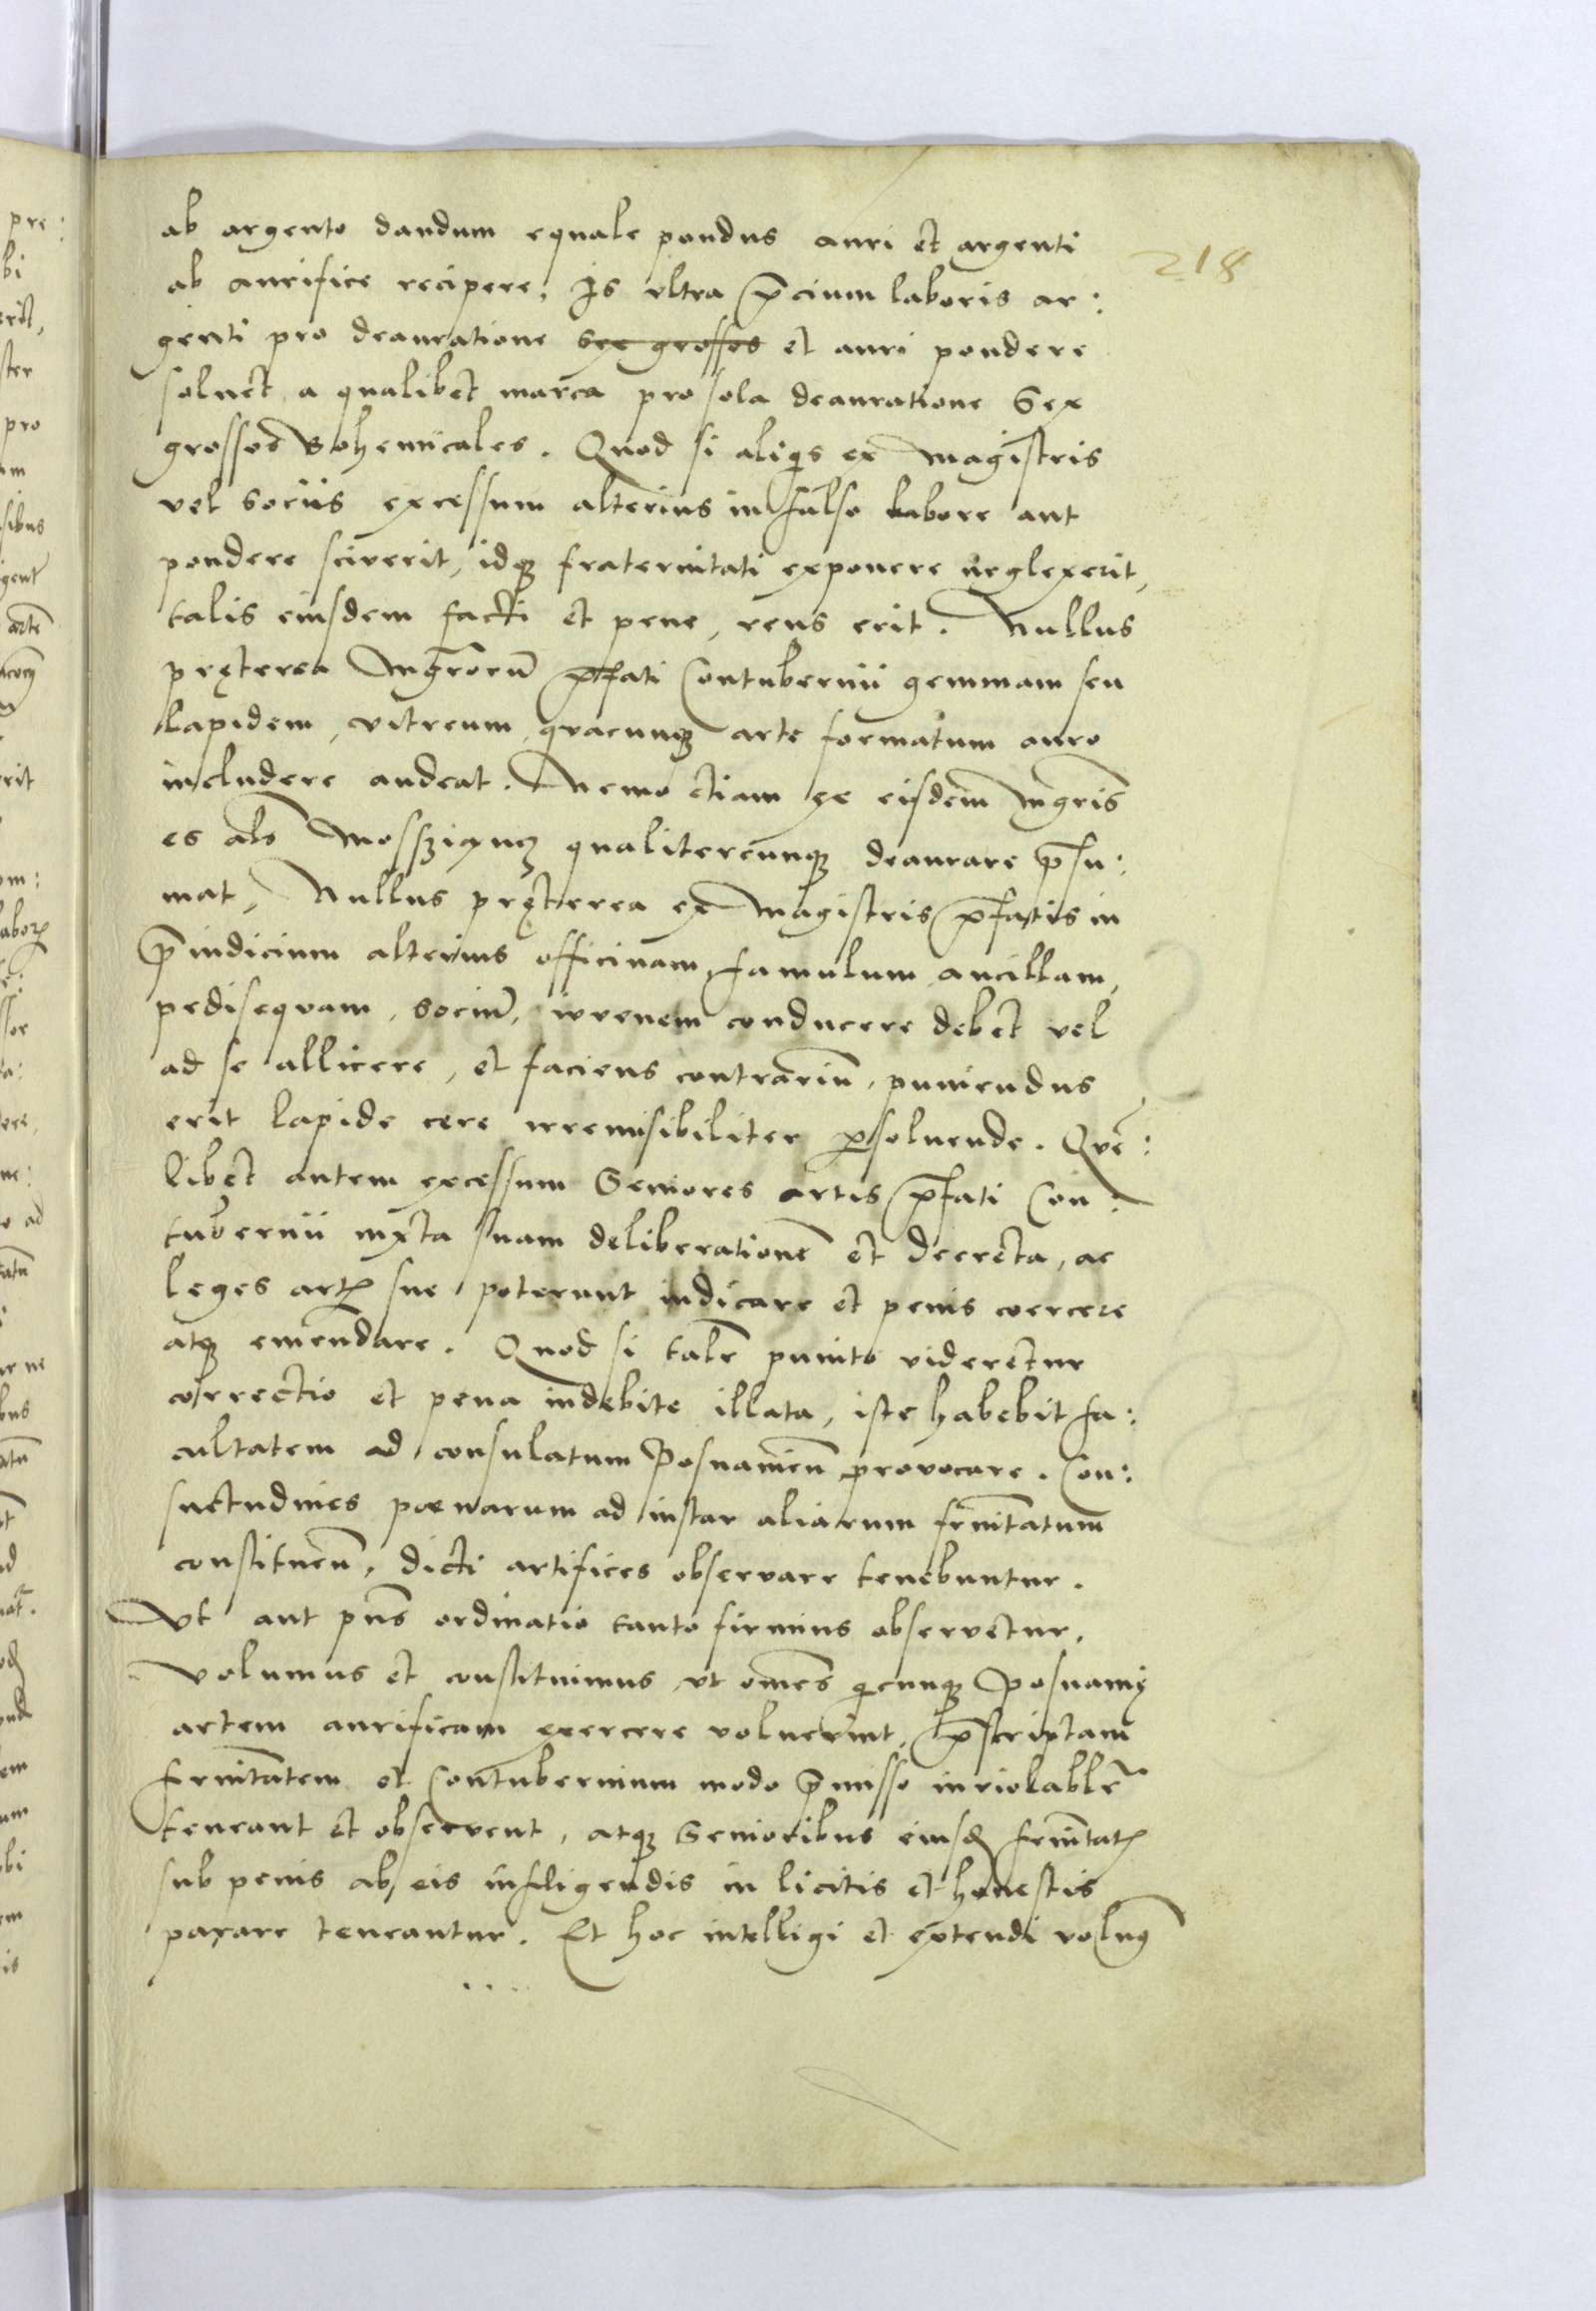 ab argento dandum equale pondus auri et argenti
218
ab aurifice recipere, Is vltra p̄cium laboris ar:
genti pro deauratione sex grossos et auri pondere
soluet a qualibet marca pro sola deauratione Sex
grossos Bohemicales. Quod si aliq̇s ex Magistris
vel Sociis excessum alterius in falso labore aut
pondere sciverit, idqꝫ fraternitati exponere neglexerit,
talis eiusdem facti et pene, reus erit. Nullus
pręterea Mgrorū p̄fati Contubernii gemmam seu
lapidem, vitreum, quacunqꝫ arte formatum auro
includere audeat. Nemo etiam ex eisdem Mgris
es als Mossziyncz qualitercunqꝫ deaurare p̄su:
mat, Nullus pręterea ex Magistris p̄fatis in
p̄iudicium alterius officinam, famulum ancillam,
pedisequam, Sociū, iuvenem conducere debet vel
ad se allicere, et faciens contrariū, puniendus
erit lapide cere irremisibiliter ꝑsoluende. Quē:
libet autem excessum Seniores artis p̄fati Con:
tubernii iuxta suam deliberationē et decreta, ac
leges artꝭ sue poterunt iudicare et penis coercere
atqꝫ emendare. Quod si talr̄ punito videretur
correctio et pena indebite illata, iste habebit fa:
cultatem ad consulatum Posnanień provocare. Con:
suetudines poenarum ad instar aliarum frnitatum
constitueń, dicti artifices observare tenebuntur.
Vt aut pn̄s ordinatio tanto firmius observetur,
Volumus et constituimus vt omēs quicunqꝫ Posnanię
artem aurificam exercere voluerint, p̄scriptam
frnitatem et Contubernium modo p̄misso inviolablr̄
teneant et observent, atqꝫ Senioribus eiusd frnitatꝭ
sub penis ab eis infligendis in licitis et honestis
parare teneantur. Et hoc intelligi et extendi volumꝰ